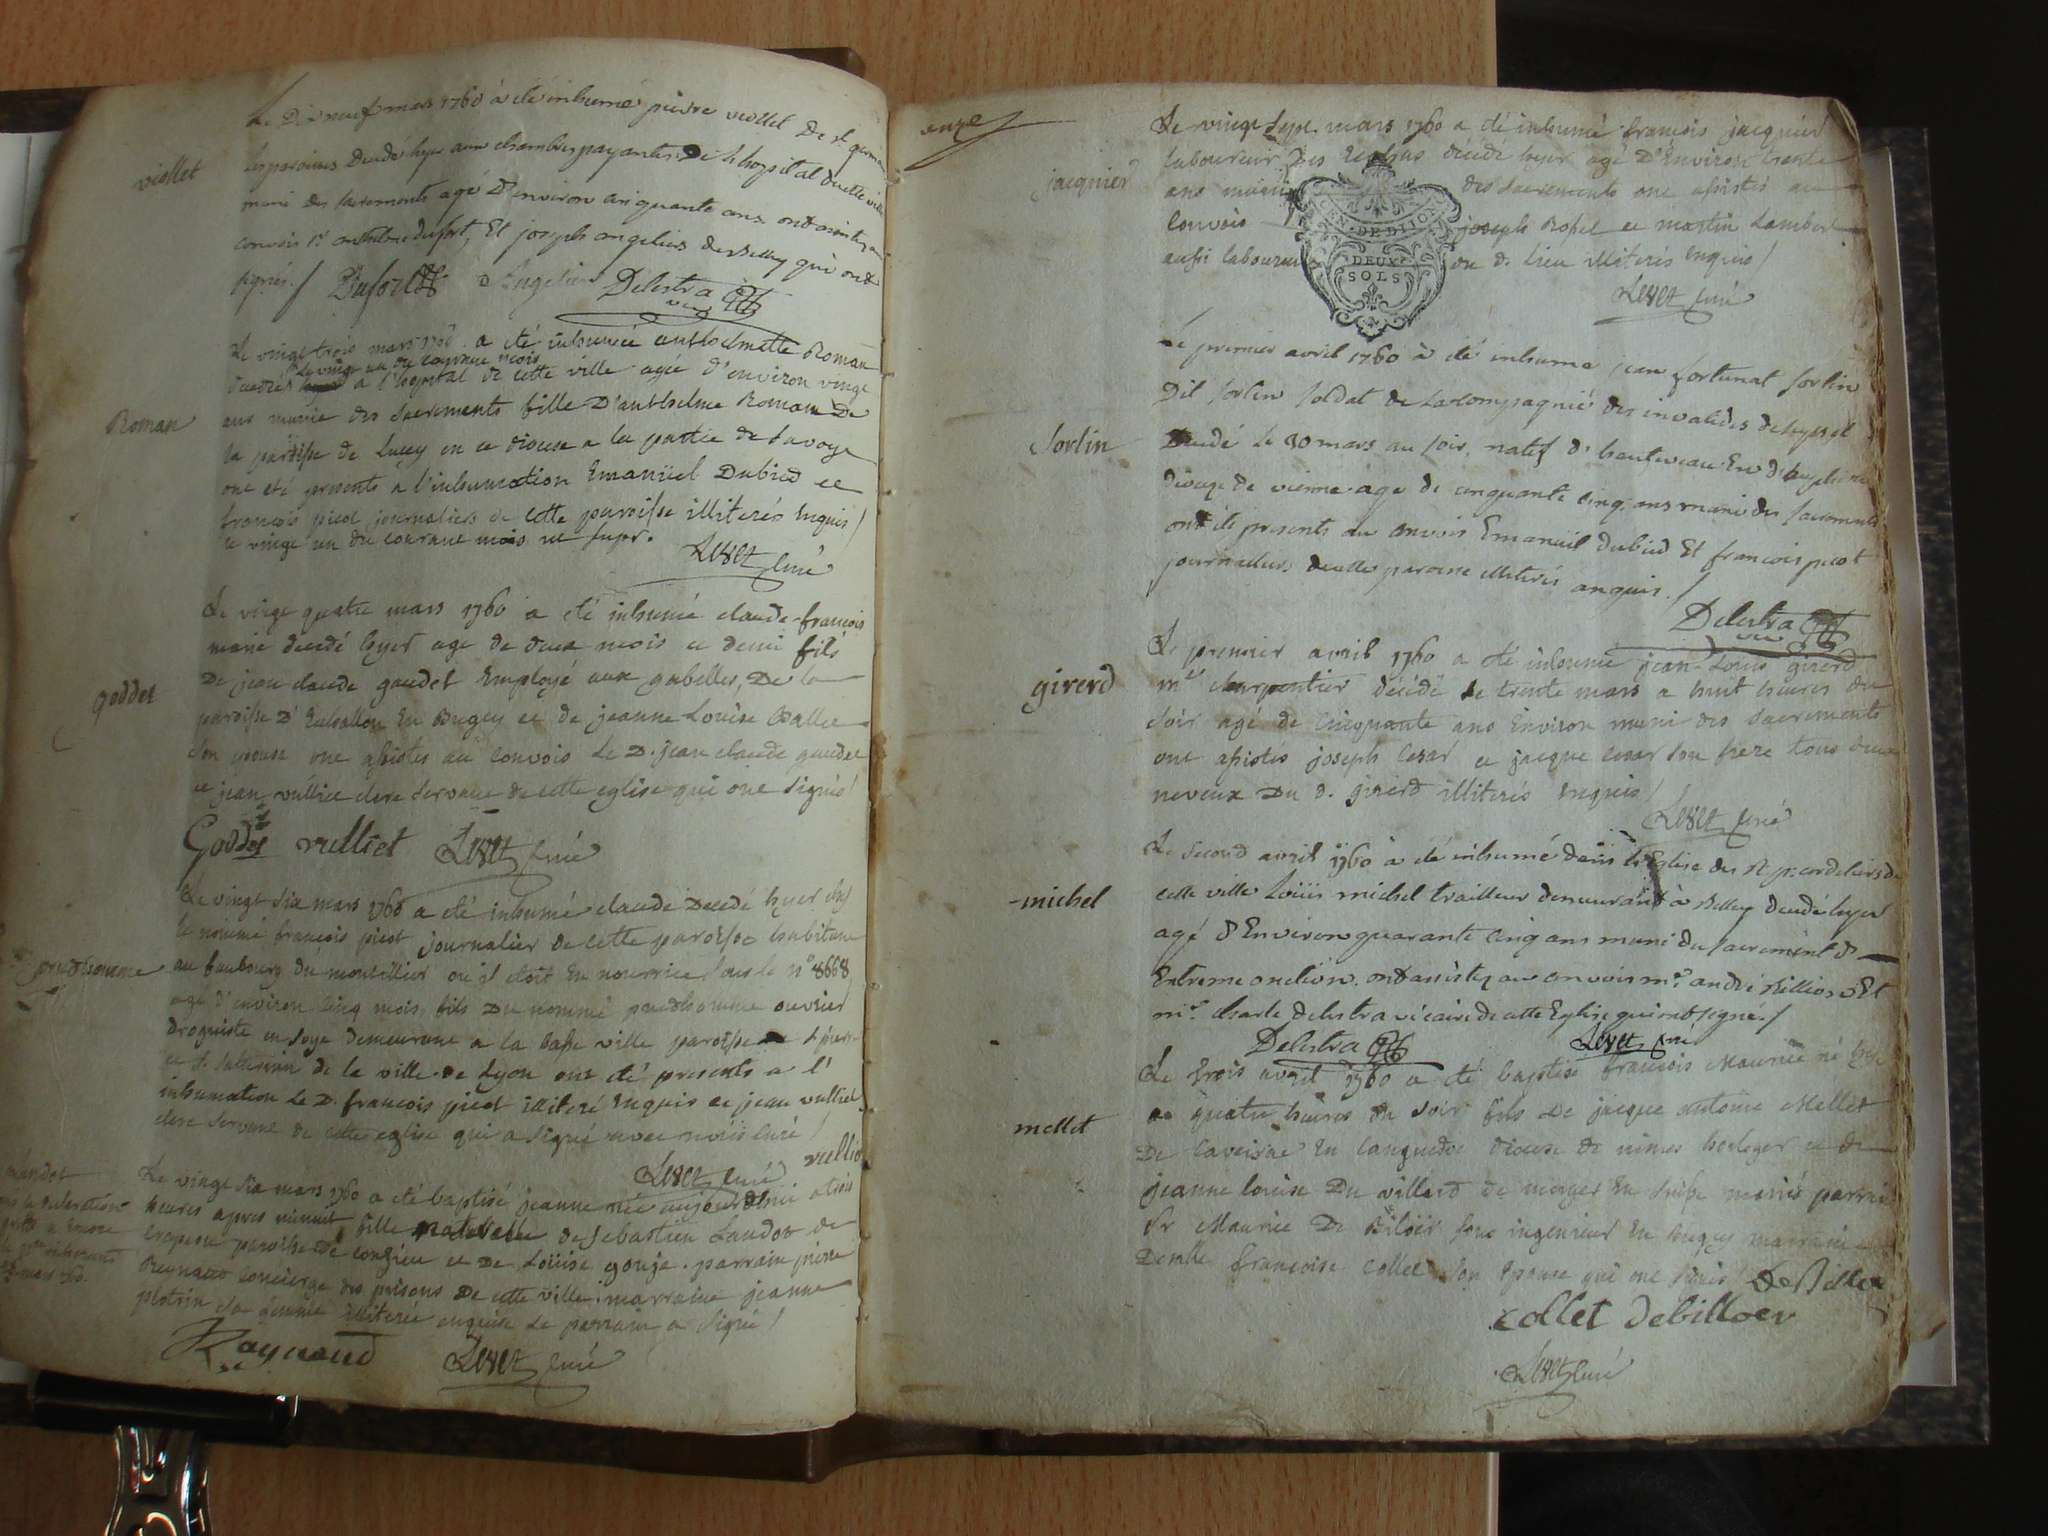 viollet
Le Dixneuf mars 1760 à été inhumé pierre viollet De st germain
les paroisses Decedé hyer aux chambres payantes De l'hospital de cette ville
muni des sacrements agé D'environ cinquante ans ont assistez au
convois sr anthelme dufort, Et joseph angelier de Belley qui ont
signés./ Dufort D'Angelier Delestra vic
Roman
Le vingt trois mars 1760 a été inhumée anthelmette Roman
le vingt un du courant mois
decedée a l'hopital de cette ville agée d'environ vingt
ans munie des sacrements fille D'anthelme Roman De
la paroisse de Lucey en ce diocese a la partie de Savoye
ont eté presents a l'inhumation Emanüel Dubied et
françois picot journaliers de cette paroisse illiterés enquis/
le vingt un du courant mois ut supr.
Levet curé
goddet
Le vingt quatre mars 1760 a été inhumé claude-françois
marie decedé hyer agé de deux mois et demi fils
De jean claude gaudet Employé aux gabelles, De la
paroisse D' En Bugey et de jeanne Louise Ballet
son epouse ont assistés au convois Le D. jean claude gaudet
et jean vulliet clerc servant de cette eglise qui ont signés/
Goddet vulliet Levet curé
prudhomme
Le vingt six mars 1760 a été inhumé claude Decedé hyer chez
le nommé françois picot journalier de cette paroisse habitant
au faubourg du montillier ou il etoit En nourrice sous le n° 8668
agé d'environ cinq mois, fils Du nommé prudhomme ouvrier
droguiste en soye demeurant a la basse ville paroisse de s. pierre
et s. saturnin de la ville de Lyon ont été presents a l'
inhumation Le D. françois picot illiteré enquis et jean vulliet
clerc servant de cette eglise qui a signé avec nous curé/
Levet curé vulliet
Landot
Le vingt six mars 1760 a été baptisé jeanne née aujourdhui a trois
heures apres minuit fille naturelle de Sebastien Landot de
paroisse de conzieu et de Loüise gouje. parrain pierre
Reynaud concierge des prisons De cette ville. marraine jeanne
plotin sa femme illiterée enquise Le parrain a signé/
Raynaud Levet curé
onze
jacquier
Le vingt sept mars 1760 a été inhumé françois jacquier
laboureur des Ecassas decedé hyer agé D'Environ trente
ans muni des sacrements ont assistés au
convois joseph Ropel et martin Lambert
aussi laboureurs du d. Lieu illiterés enquis/
GEN. DE DIJON
DEUX
SOLS
Levet curé
sorlin
Le premier avril 1760 à été inhumé jean fortunat sorlin
Dit sorlin soldat de la compagnie des invalides de seyssel
Decedé le 30 mars au soir, natif d' En dauphiné
diocese de vienne agé de cinquante cinq ans muni des sacrements
ont été presents au convois Emanuel dubied Et françois picot
journaliers de cette paroisse illiterés enquis./
Delestra vic
girerd
Le premier avril 1760 a été inhumé jean-Louis girerd
mtre charpentier décédé le trente mars a huit heures du
soir agé de cinquante ans environ muni des sacrements
ont assistés joseph cesar et jacque cesar son frere tous deux
neveux Du d. girerd illiterés enquis/
Levet curé
michel
Le second avril 1760 à été inhumé dans L'Eglise des R. p. cordeliers de
cette ville Loüis michel trailleur demeurant à Belley decedé hyer
agé d'Environ quarante cinq ans muni du sacrement d'
Extreme onction. ont assistez au convois mr. andré Billion Et
mr. charle delestra vicaire de cette Eglise qui ont signe./
Delestra Levet curé
mellet
Le trois avril 1760 a été baptisé françois Maurice né hyer
a quatre heures du soir fils de jacque antoine Mellet
De Caveirac en Languedoc diocese de nimes horloger et de
jeanne louise Du villard de morges En Suisse mariés parrain
Sr Maurice De sous ingenieur En bugey marraine
Demlle françoise collet son Epouse qui ont signés/ De Billoer
collet debilloer
Levet curé